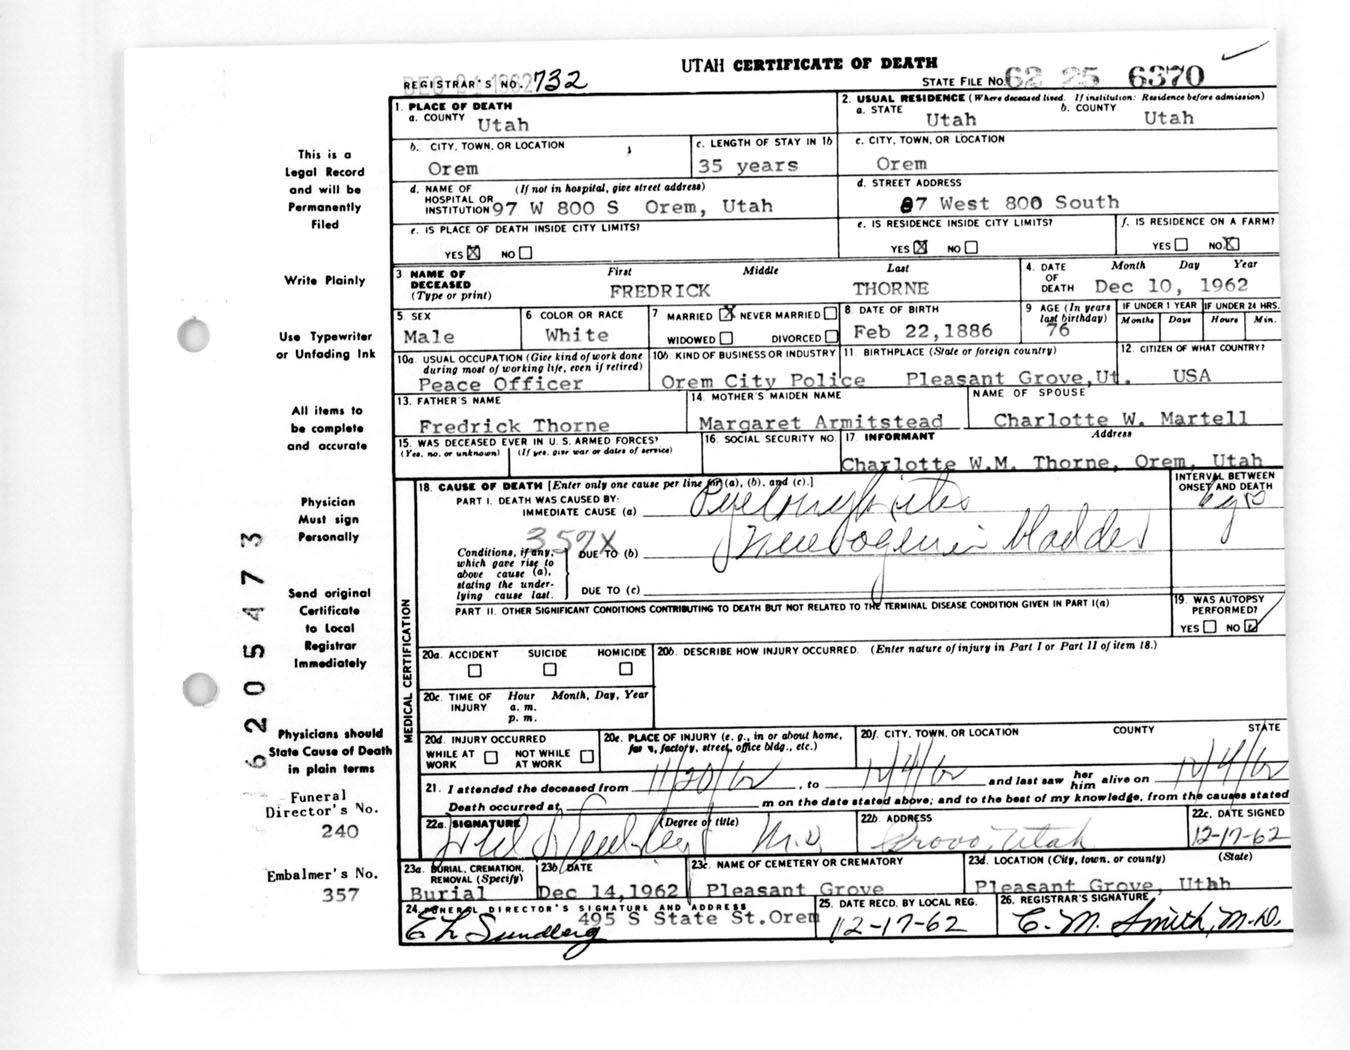 UTAH CERTIFICATE OF DEATH
DEC 21 1962
REGISTRAR'S NO. 732
STATE FILE NO. 62 25 6370
1. PLACE OF DEATH
a. COUNTY
Utah
2. USUAL RESIDENCE (Where deceased lived. If institution: Residence before admission)
a. STATE b. COUNTY
Utah Utah
b. CITY, TOWN, OR LOCATION
Orem
c. LENGTH OF STAY IN 1b
35 years
c. CITY, TOWN, OR LOCATION
Orem
d. NAME OF (If not in hospital, give street address)
HOSPITAL OR
INSTITUTION 97 W 800 S Orem, Utah
d. STREET ADDRESS
97 West 800 South
e. IS PLACE OF DEATH INSIDE CITY LIMITS?
YES NO
e. IS RESIDENCE INSIDE CITY LIMITS?
YES NO
f. IS RESIDENCE ON A FARM?
YES NO
3 NAME OF DECEASED (Type or print)
First Middle Last
FREDRICK THORNE
4. DATE OF DEATH
Month Day Year
Dec 10, 1962
5. SEX
Male
6 COLOR OR RACE
White
7 MARRIED NEVER MARRIED
WIDOWED DIVORCED
8 DATE OF BIRTH
Feb 22,1886
9 AGE (In years last birthday)
76
IF UNDER 1 YEAR IF UNDER 24 HRS.
Months Days Hours Min.
10a. USUAL OCCUPATION (Give kind of work done
during most of working life, even if retired)
Peace Officer
10b. KIND OF BUSINESS OR INDUSTRY
Orem City Police
11. BIRTHPLACE (State or foreign country)
Pleasant Grove,Ut.
12. CITIZEN OF WHAT COUNTRY?
USA
13. FATHER'S NAME
Fredrick Thorne
14. MOTHER'S MAIDEN NAME
Margaret Armitstead
NAME OF SPOUSE
Charlotte W. Martell
15. WAS DECEASED EVER IN U.S. ARMED FORCES?
(Yes, no, or unknown) (If yes, give war or dates of service)
16. SOCIAL SECURITY NO.
17. INFORMANT Address
Charlotte W.M. Thorne, Orem, Utah
MEDICAL CERTIFICATION
18. CAUSE OF DEATH [Enter only one cause per line for (a), (b), and (c).]
INTERVAL BETWEEN
ONSET AND DEATH
PART I. DEATH WAS CAUSED BY:
IMMEDIATE CAUSE (a) Pyelonephritis
357X
Conditions, if any,
which gave rise to
above cause (a),
stating the under-
lying cause last.
DUE TO (b) Neurogenic bladder
DUE TO (c)
PART II. OTHER SIGNIFICANT CONDITIONS CONTRIBUTING TO DEATH BUT NOT RELATED TO THE TERMINAL DISEASE CONDITION GIVEN IN PART I(a)
19. WAS AUTOPSY
PERFORMED?
YES NO
20a. ACCIDENT SUICIDE HOMICIDE
20b. DESCRIBE HOW INJURY OCCURRED. (Enter nature of injury in Part I or Part II of item 18.)
20c. TIME OF INJURY
Hour Month, Day, Year
a. m.
p. m.
20d. INJURY OCCURRED
WHILE AT WORK NOT WHILE AT WORK
20e. PLACE OF INJURY (e. g., in or about home,
farm, factory, street, office bldg., etc.)
20f. CITY, TOWN, OR LOCATION COUNTY STATE
21. I attended the deceased from 11/20/62, to 12/4/62 and last saw her him alive on 12/4/62
Death occurred at m on the date stated above; and to the best of my knowledge, from the causes stated
22a. SIGNATURE (Degree or title)
M.D.
22b. ADDRESS
Provo, Utah
22c. DATE SIGNED
12-17-62
23a. BURIAL, CREMATION,
REMOVAL (Specify)
Burial
23b. DATE
Dec 14,1962
23c. NAME OF CEMETERY OR CREMATORY
Pleasant Grove
23d. LOCATION (City, town, or county) (State)
Pleasant Grove, Utah
24. FUNERAL DIRECTOR'S SIGNATURE AND ADDRESS
495 S State St.Orem
E L Sundberg
25. DATE RECD. BY LOCAL REG.
12-17-62
26. REGISTRAR'S SIGNATURE
C. M. Smith, M.D.
This is a
Legal Record
and will be
Permanently
Filed
Write Plainly
Use Typewriter
or Unfading Ink
All items to
be complete
and accurate
Physician
Must sign
Personally
Send original
Certificate
to Local
Registrar
Immediately
Physicians should
State Cause of Death
in plain terms
Funeral
Director's No.
240
Embalmer's No.
357
6205473